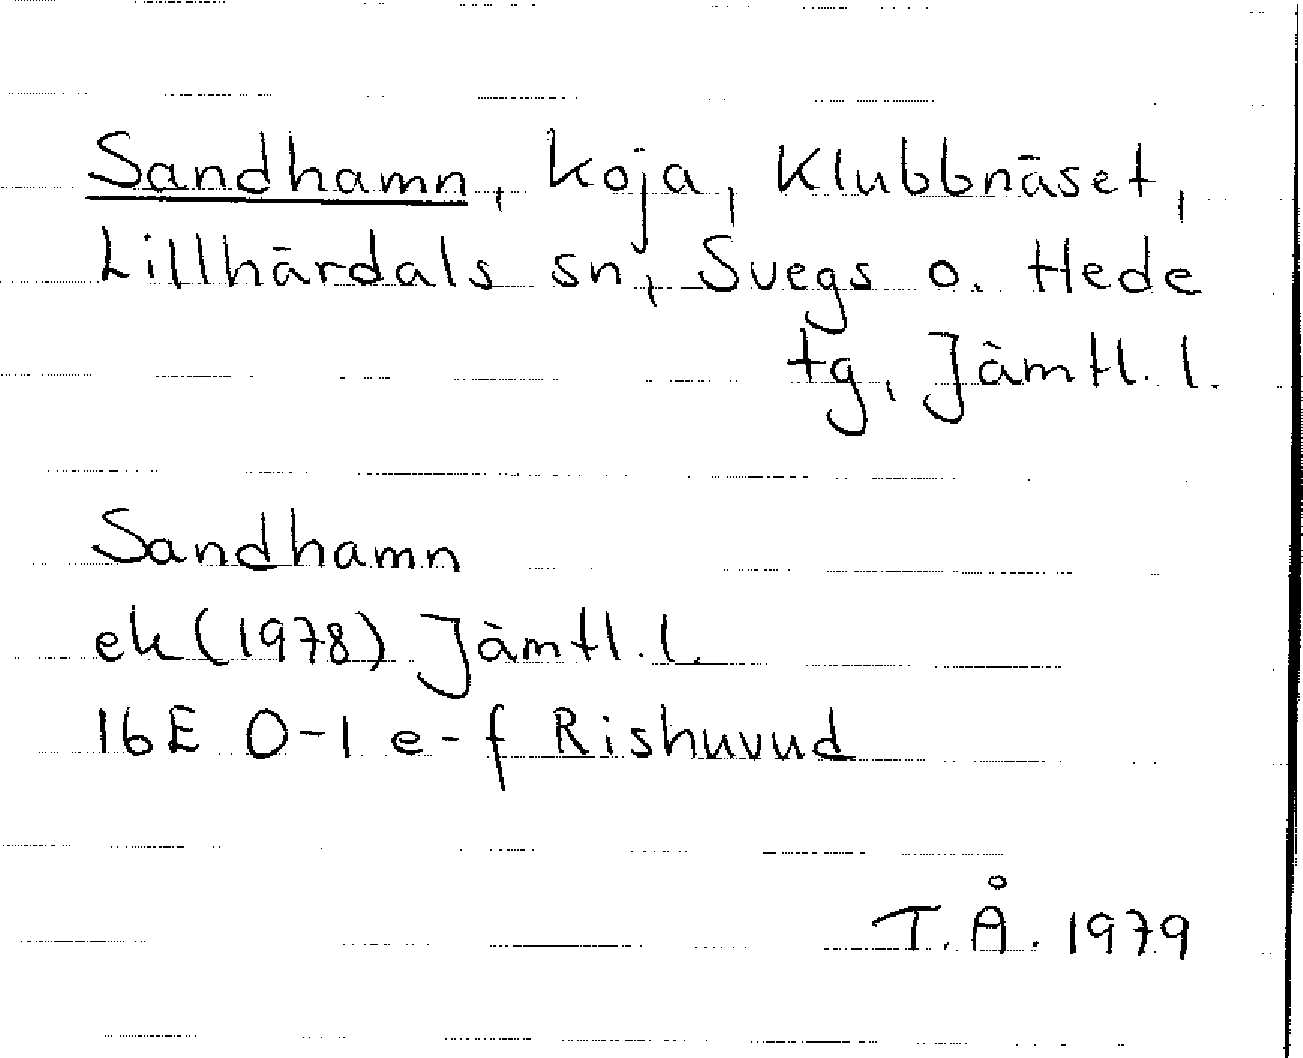 Sandhamn, koja, Klubbnäset,
Lillhärdals sn, Svegs o. Hede
tg, Jämtl. l.
Sandhamn
ek (1978) Jämtl. l.
16E 0-1 e-f Rishuvud
T. Å. 1979